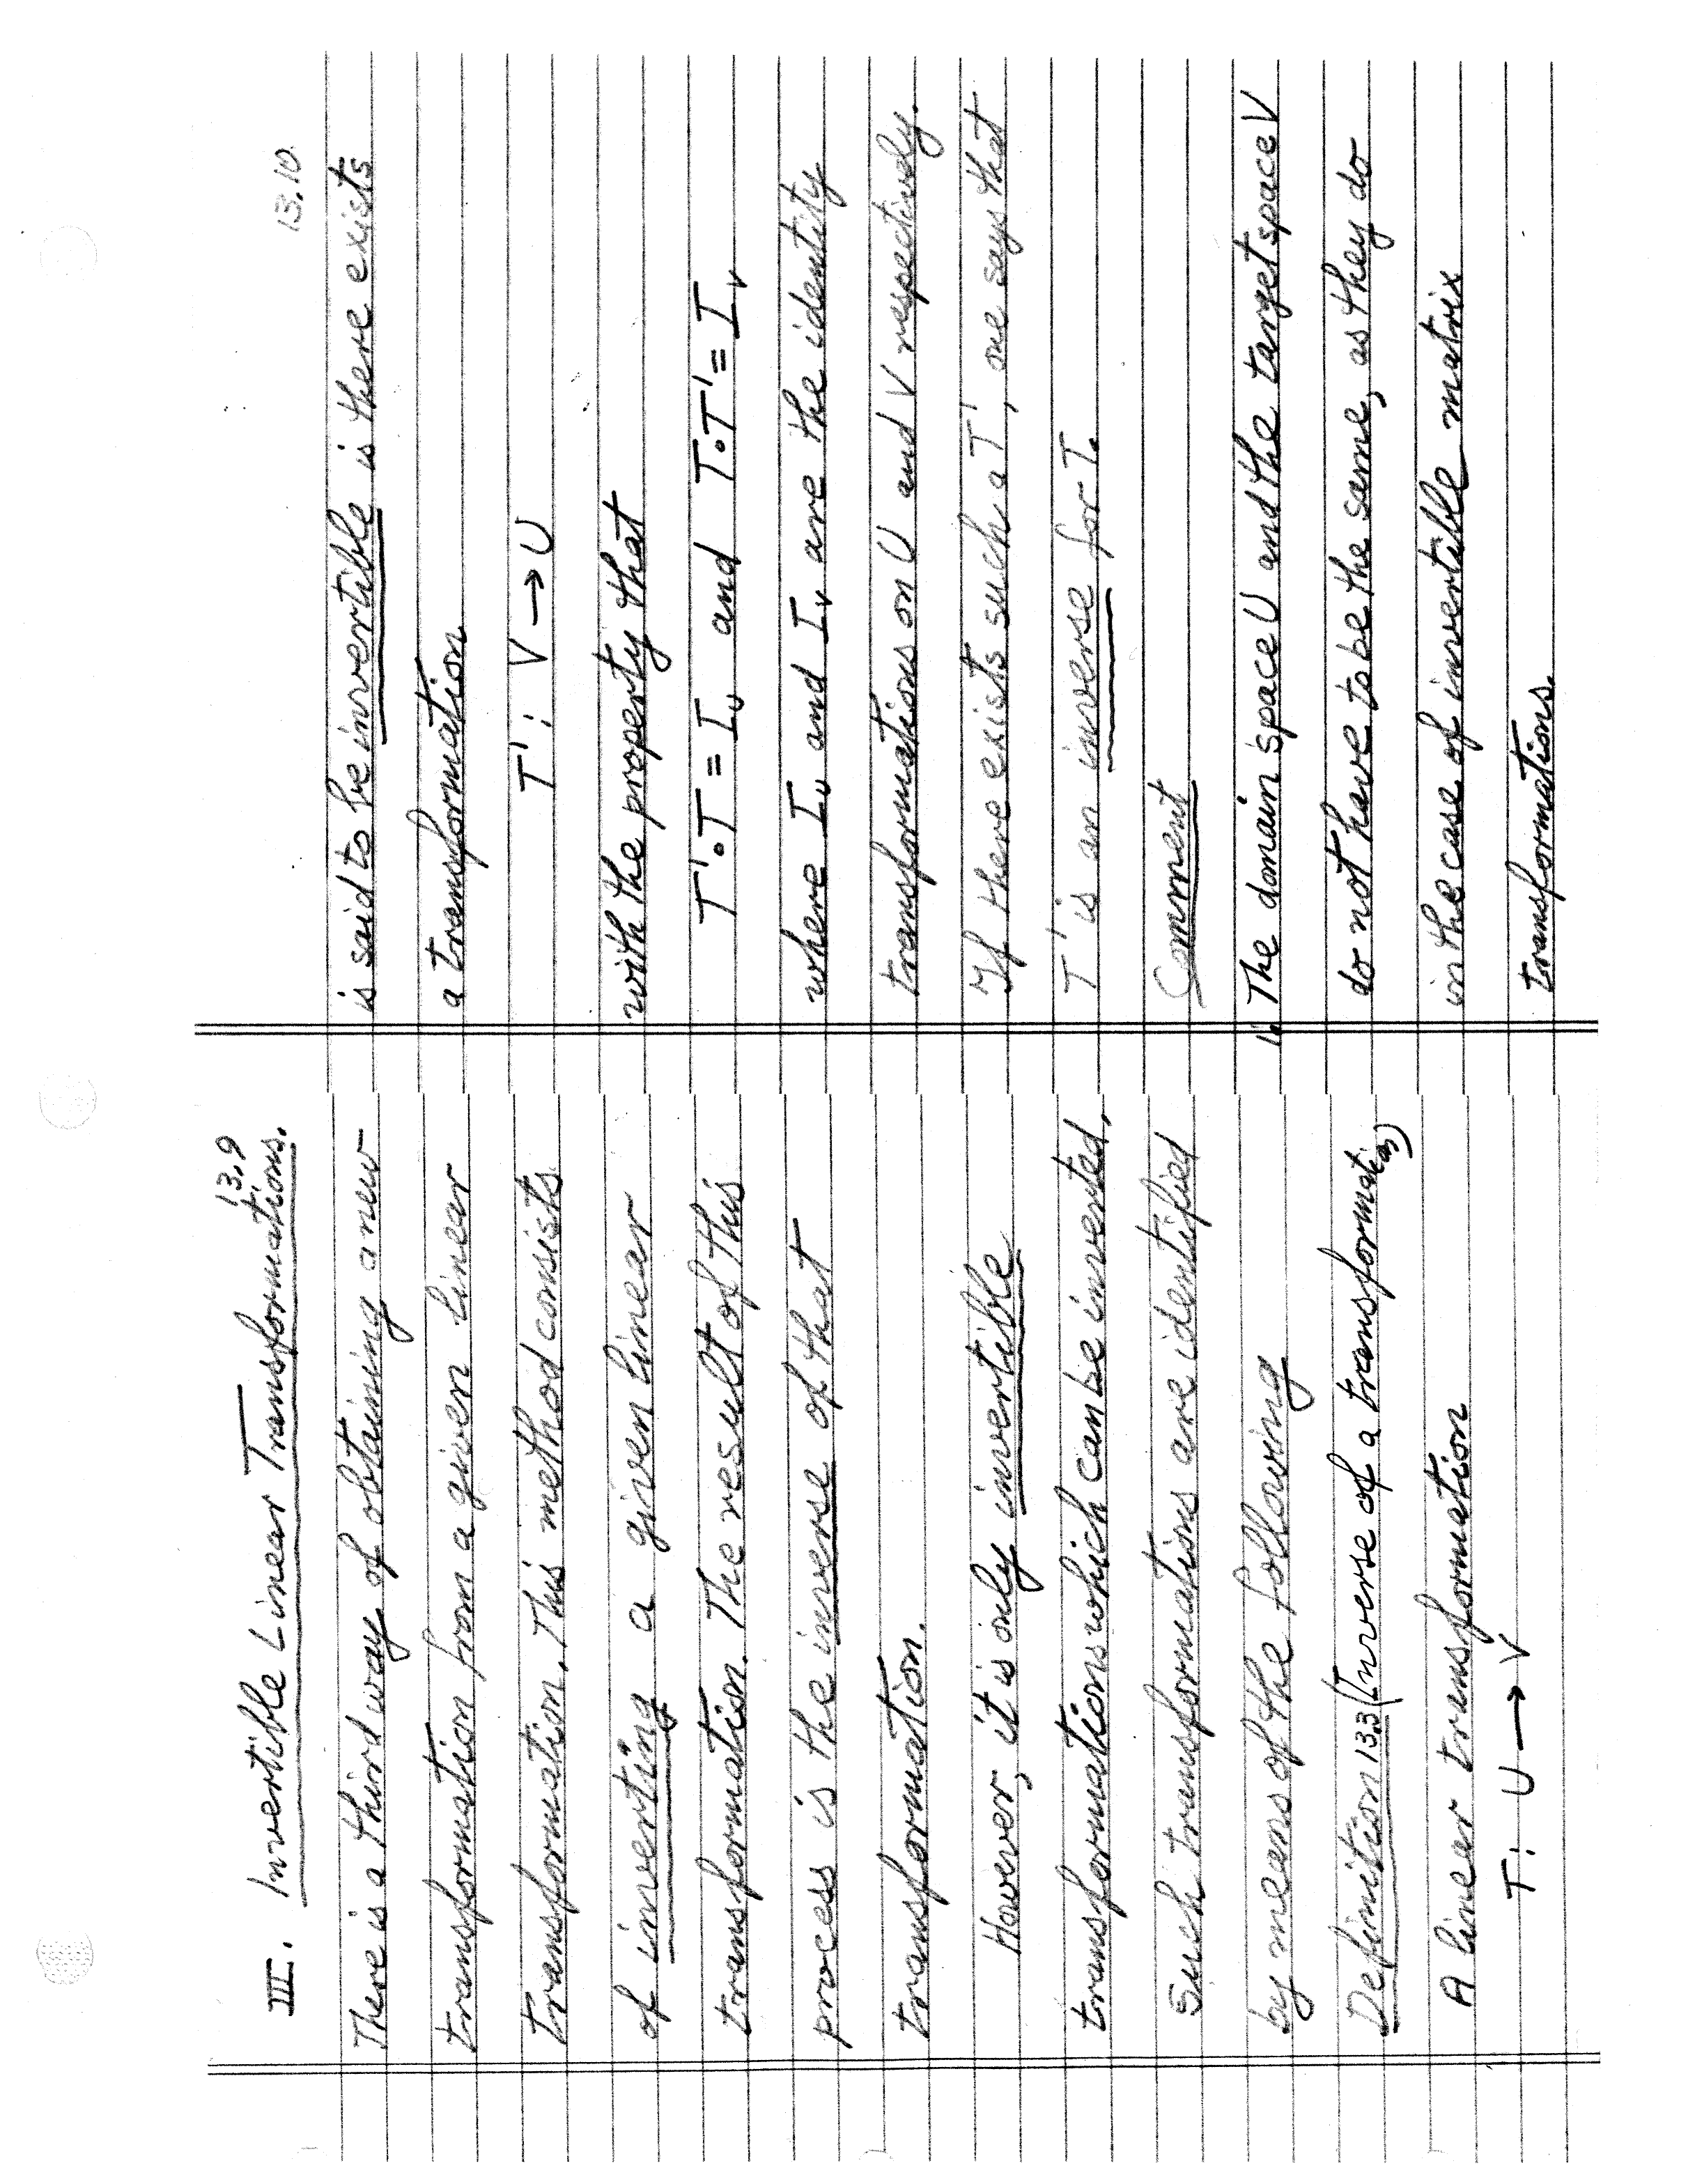 13.9
III. Invertible Linear Transformations.
There is a third way of obtaining a new
transformation from a given linear
transformation. This method consists
of inverting a given linear
transformation. The result of this
process is the inverse of that
transformation.
However, it is only invertible
transformations which can be inverted.
Such transformations are identified
by means of the following
Definition 13.3 (Inverse of a transformation)
A linear transformation
T: U → V
13.10
is said to be invertible is there exists
a transformation
T': V → U
with the property that
T'∘T = I_U and T∘T' = I_V
where I_U and I_V are the identity
transformations on U and V respectively.
If there exists such a T', one says that
T' is an inverse for T.
Comment
1. The domain space U and the target space V
do not have to be the same, as they do
in the case of invertible matrix
transformations.